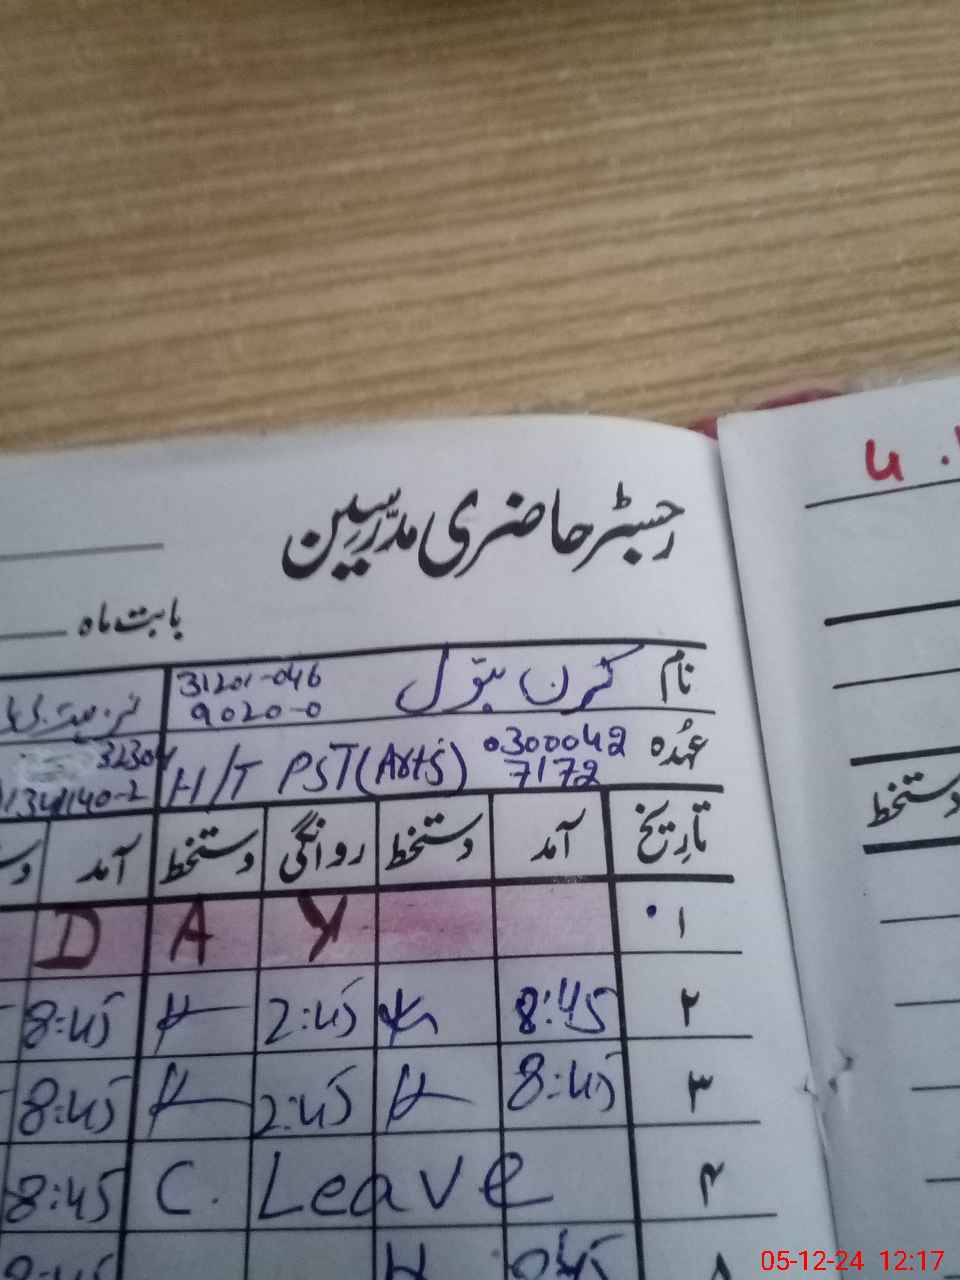 رجسٹر حاضری مدرسین
بابت ماہ
نام کرن بتول 31201-046
9020-0
عہدہ 0300042
7172 H/T PST(Arts)
32304
1134140-2
تاریخ آمد دستخط روانگی دستخط آمد
دستخط
۱ D A Y
۲ 8:45 2:45 8:45
۳ 8:45 2:45 8:45
۴ C. Leave 8:45
05-12-24 12:17